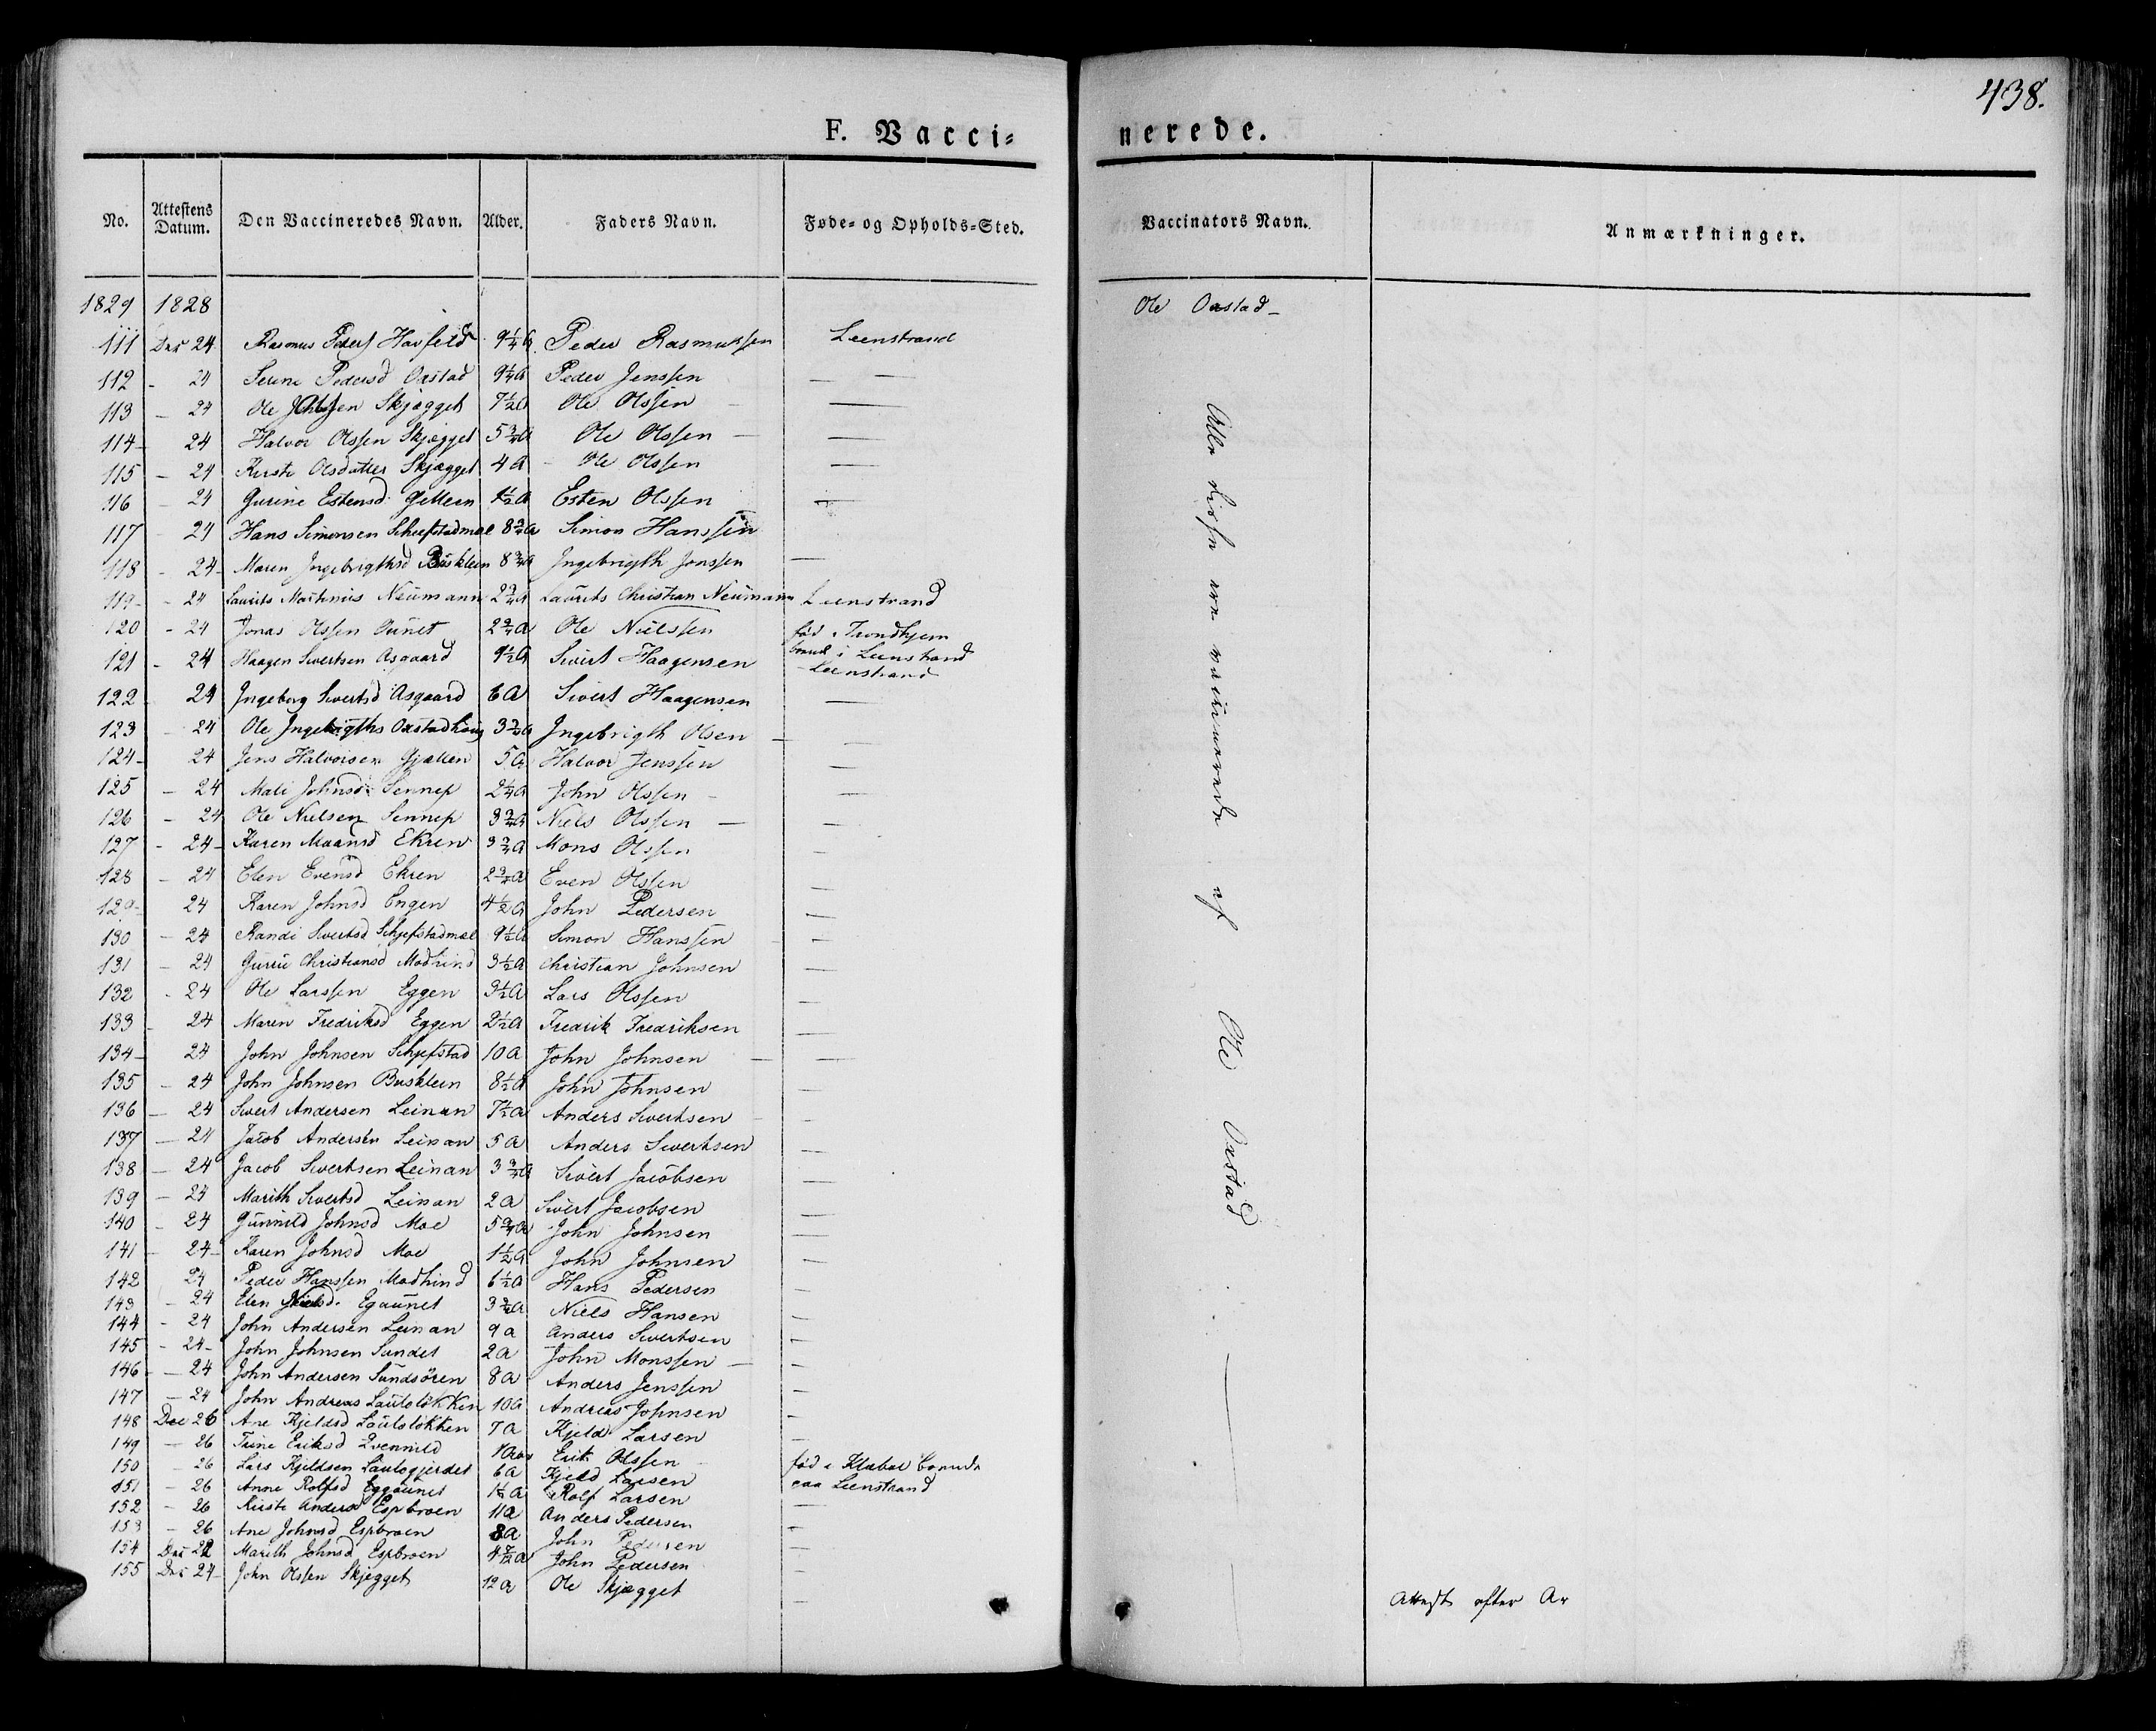 438.
F. Vacci- nerede.
No. Attestens Datum. Den Vaccineredes Navn. Alder. Faders Navn. Føde- og Opholds-Sted. Vaccinators Navn. Anmærkninger.
1829 1828 Ole Oxstad
111 Dec 24 Rasmus Peders 9 1/4 a Peder Rasmussen Leenstrand
112 - 24 Serine Pedersd Oxstad 9 1/4 a Peder Jenssen —
113 - 24 Ole Skjægget 7 1/2 a Ole Olssen —
114 - 24 Halvor Olssen Skjægget 5 3/4 a Ole Olssen —
115 - 24 Kirste Olsdatter Skjægget 4 a Ole Olssen —
116 - 24 Gurine Estensd 1 1/2 a Esten Olssen —
117 - 24 Hans Simonsen 8 3/4 a Simon Hanssen
118 - 24 Maren Ingebrigthsd Busklein 8 3/4 a Ingebrigth Jonssen —
119 - 24 Laurits Martinus Neumann 2 3/4 a Laurits Christian Neumann Leenstrand
120 - 24 Jonas Olssen 2 3/4 a Ole Nielssen fød i Trondhjem
i Leenstrand
121 - 24 Haagen Sivertsen Asgaard 9 1/2 a Sivert Haagensen Leenstrand
122 - 24 Ingeborg Sivertsd Asgaard 6 a Sivert Haagensen —
123 - 24 Ole Ingebrigths Oxstadhaug 3 3/4 a Ingebrigth Olsen —
124 - 24 Jens Halvorsen 5 a Halvor Jenssen —
125 - 24 Mali Johnsd Sennep 2 1/4 a John Olssen —
126 - 24 Ole Nielsen Sennep 3 3/4 a Niels Olssen —
127 - 24 Karen Maansd Ekren 3 3/4 a Mons Olssen —
128 - 24 Elen Evensd Ekren 2 3/4 a Even Olssen —
129 - 24 Karen Johnsd Engen 4 1/2 a John Pedersen —
130 - 24 Randi Sivertsd 9 1/2 a Simon Hanssen —
131 - 24 Christiansd 3 1/2 a Christian Johnsen —
132 - 24 Ole Larssen Eggen 3 1/2 a Lars Olssen —
133 - 24 Maren Fredriksd Eggen 2 1/2 a Fredrik Fredriksen —
134 - 24 John Johnsen Schjefstad 10 a John Johnsen —
135 - 24 John Johnsen Busklein 8 1/2 a John Johnsen —
136 - 24 Sivert Andersen Leinan 7 1/2 a Anders Sivertsen —
137 - 24 Jacob Andersen Leinan 5 a Anders Sivertsen —
138 - 24 Jacob Sivertsen Leinan 3 3/4 a Sivert Jacobsen —
139 - 24 Marith Sivertsd Leinan 2 a Sivert Jacobsen —
140 - 24 Gunnild Johnsd Moe 5 3/4 a John Johnsen —
141 - 24 Karen Johnsd Moe 1 1/2 a John Johnsen —
142 24 Peder Hanssen 6 1/2 a Hans Pedersen —
143 - 24 Elen Nielsd. Egaunet 3 3/4 a Niels Hansen —
144 - 24 John Andersen Leinan 9 a Anders Sivertsen —
145 - 24 John Johnsen Sundet 2 a John Monssen —
146 - 24 John Andersen Sundsören 8 a Anders Jenssen —
147 - 24 John Andreas Lauloløkken 10 a Andreas Johnsen —
148 Dec 26 Ane Kjeldsd Lauloløkken 7 a Kjeld Larsen —
149 - 26 Trine Eriksd Erik Olssen fød i Klæbue
150 - 26 Lars Kjeldsen Laulogjerdet 6 a Kjeld Larsen paa Leenstrand
151 - 26 Anne Rolfsd Eggaunet 1 1/2 a Rolf Larsen —
152 - 26 Kirste Andersd Espbroen 11 a Anders Pedersen —
153 - 26 Ane Johnsd Espbroen 8 a John Pedersen —
154 Dec 22 Marith Johnsd Espbroen John Pedersen —
155 Dec 24 John Olssen Skjægget 12 a Ole Skjægget — Attest efter
Alle disse ere vaccinerede af Ole Oxstad